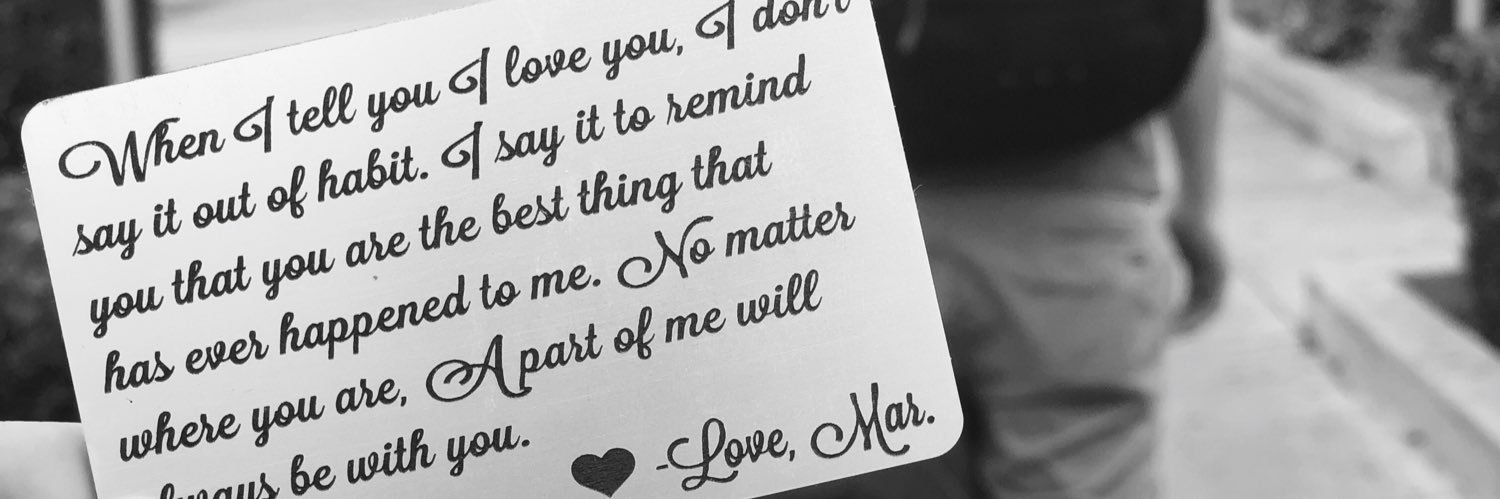 When I tell you I love you, I don't
say it out of habit. I say it to remind
you that you are the best thing that
has ever happened to me. No matter
where you are, A part of me will
always be with you.
-Love, Mar.